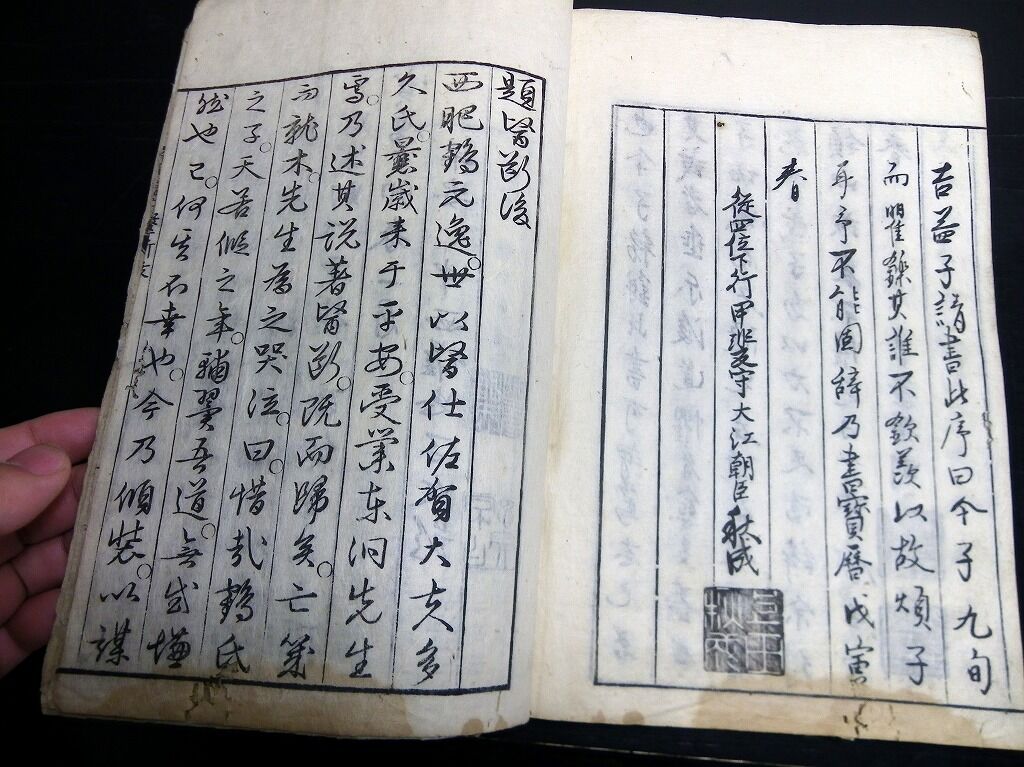 吉益子請書此序曰今子九旬
而矍鑠其誰不欽羨以故煩子
耳予不能固辞乃書寶曆戊寅
春
從四位下行甲斐守大江朝臣秋成
題醫斷後
西肥鶴元逸世以醫仕佐賀大夫多
久氏曩歲来于平安受業東洞先生
焉乃述其説著醫斷既而歸矣亡幾
而就木先生為之哭泣曰惜哉鶴氏
之子天若假之年輔翼吾道無或慊
然也已何其不幸也今乃傾装以謀